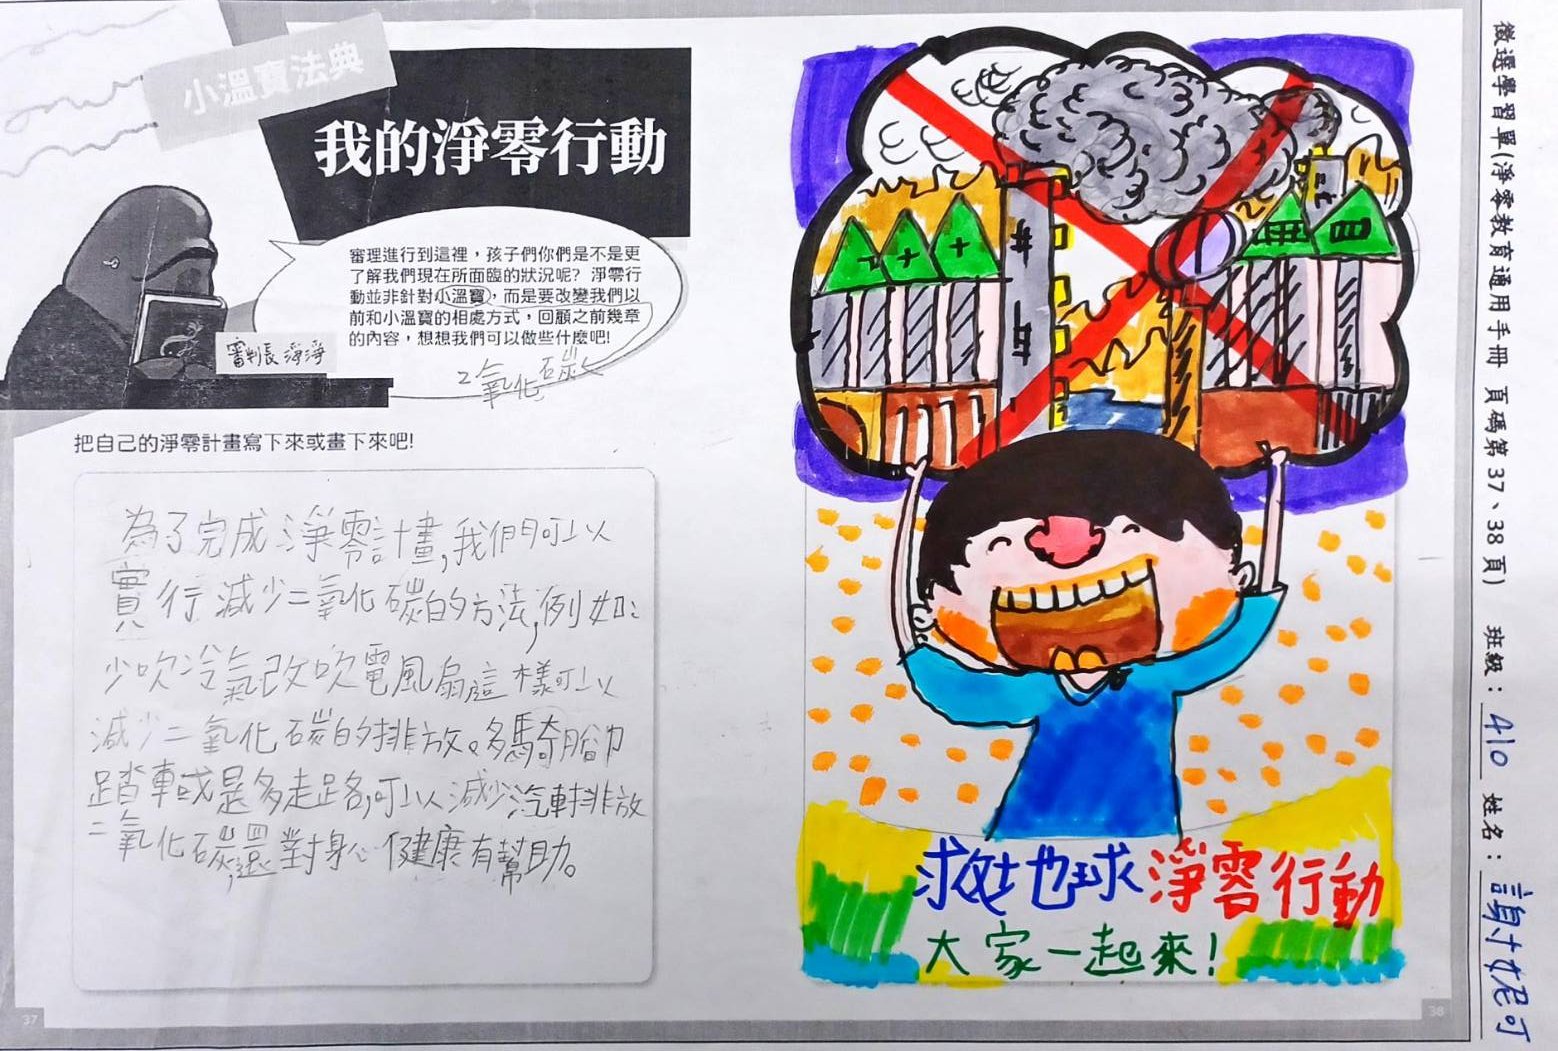 小溫寶法典
我的淨零行動
審理進行到這裡，孩子們你們是不是更
了解我們現在所面臨的狀況呢？淨零行
動並非針對小溫寶，而是要改變我們以
前和小溫寶的相處方式，回顧之前幾章
的內容，想想我們可以做些什麼吧!
二氧化碳
審判長 淨淨
把自己的淨零計畫寫下來或畫下來吧!
為了完成淨零計畫,我們可以
實行減少二氧化碳的方法,例如:
少吹冷氣改吹電風扇這樣可以
減少二氧化碳的排放。多騎腳
踏車或是多走路,可以減少汽車排放
二氧化碳,還對身心健康有幫助。
37
救地球淨零行動
大家一起來!
38
徵選學習單(淨零教育通用手冊 頁碼第37、38頁) 班級:410 姓名:謝妮可